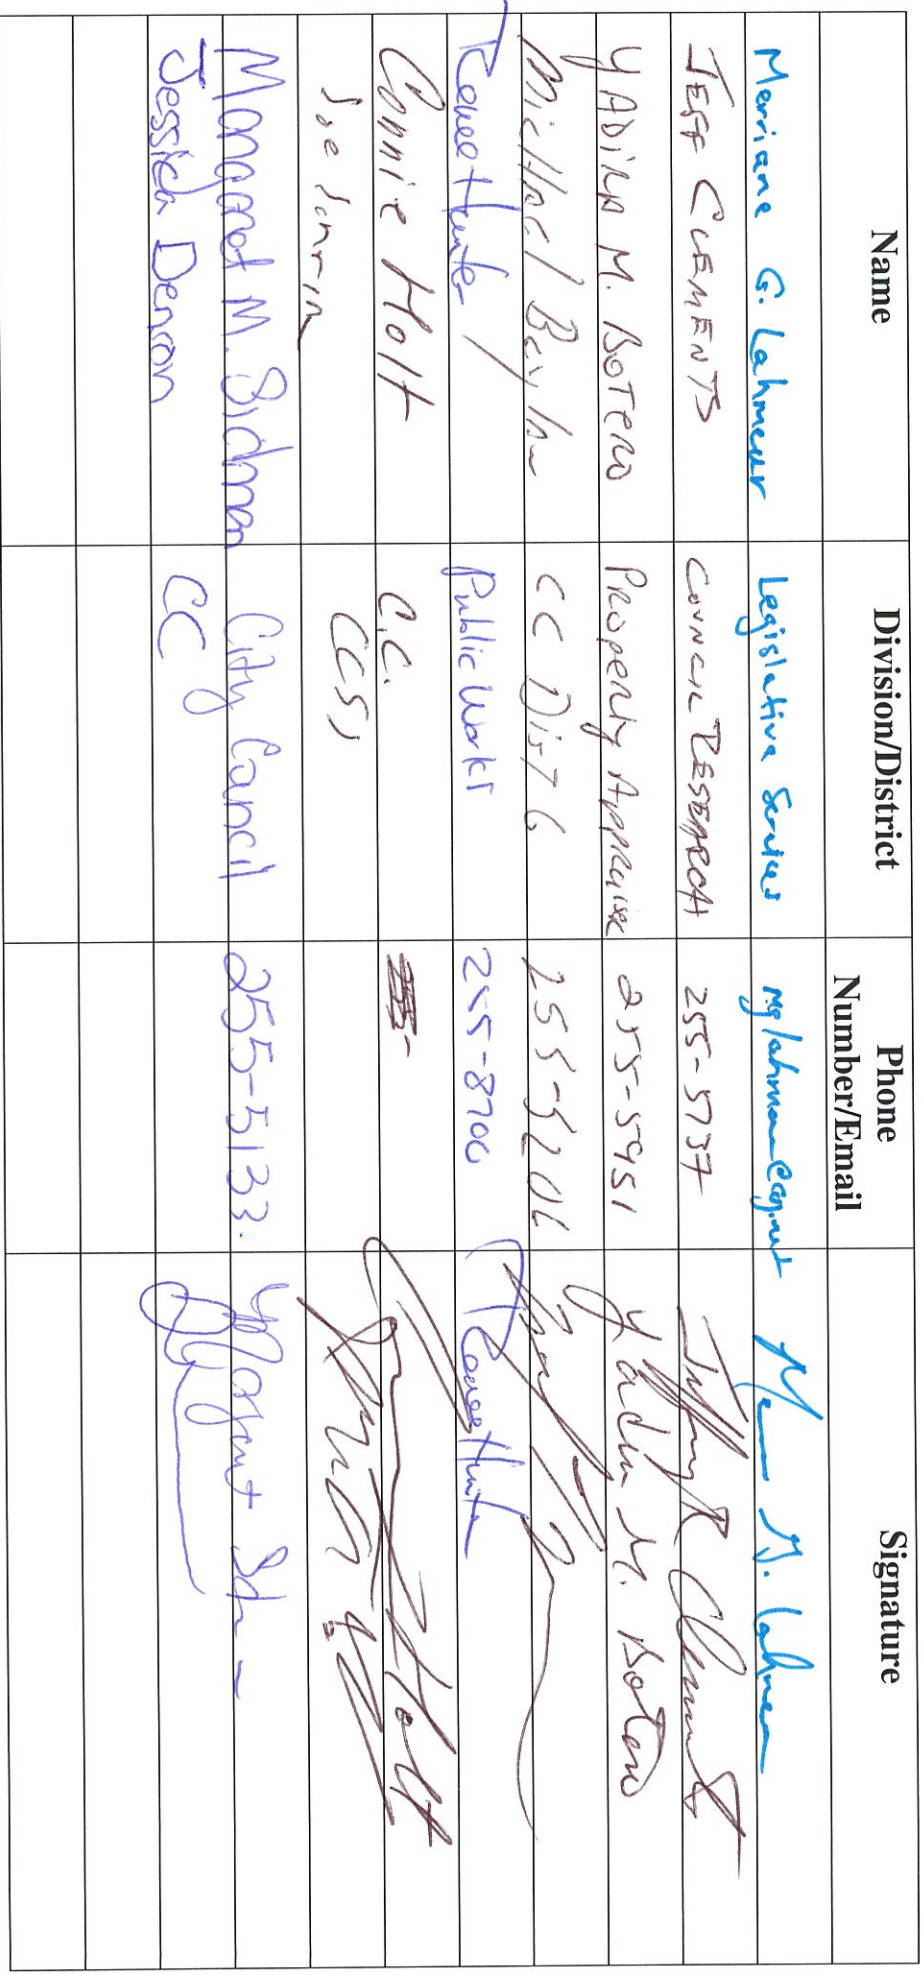 Name Division/District Phone Number/Email Signature
Merriane G. Lahmeur Legislative Services M. Lahmeur
JEFF CLEMENTS COUNCIL RESEARCH 255-5137 Jeffrey R Clements
YADIRA M. BOTERO Property Appraiser 255-5951 Yadira M. Botero
Michael CC Dist 6 255-5206
Renee Hunter Public Works 255-8700 Renee Hunter
Connie Holt C.C. Connie Holt
CCSS
Margaret M. Sidman City Council 255-5133. Margaret
Jessica Denson CC